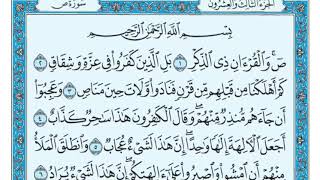 الجزء الثالث والعشرون سورة ص
بِسْمِ اللَّهِ الرَّحْمَٰنِ الرَّحِيمِ
صٓ وَالْقُرْءَانِ ذِى الذِّكْرِ ١ بَلِ الَّذِينَ كَفَرُوا فِى عِزَّةٍ وَشِقَاقٍ ٢
كَمْ أَهْلَكْنَا مِن قَبْلِهِم مِّن قَرْنٍ فَنَادَوا وَّلَاتَ حِينَ مَنَاصٍ ٣ وَعَجِبُوا
أَن جَاءَهُم مُّنذِرٌ مِّنْهُمْ وَقَالَ الْكَٰفِرُونَ هَٰذَا سَٰحِرٌ كَذَّابٌ ٤
أَجَعَلَ الْآلِهَةَ إِلَٰهًا وَٰحِدًا إِنَّ هَٰذَا لَشَىْءٌ عُجَابٌ ٥ وَانطَلَقَ الْمَلَأُ
مِنْهُمْ أَنِ امْشُوا وَاصْبِرُوا عَلَىٰ ءَالِهَتِكُمْ إِنَّ هَٰذَا لَشَىْءٌ يُرَادُ ٦